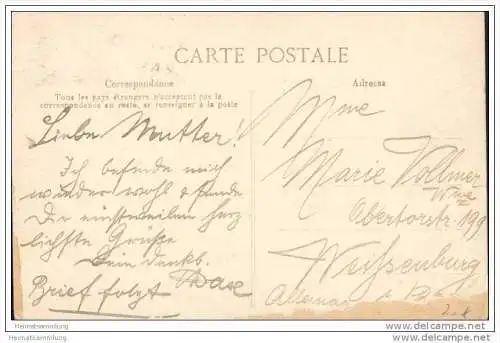 CARTE POSTALE
Correspondance
Tous les pays étrangers n'acceptent pas la
correspondance au recto, se renseigner à la poste
Adresse
Liebe Mutter!
Ich befinde mich
wunder wohl & sende
Dir einstweilen herz
lichste Grüße
Dein dankb.
Brief folgt
Mme
Marie Vollmer
Wwe
Obertorstr. 199
Weissenburg
i
Heimatsammlung
Heimatsammlung.de
www.delcampe.net